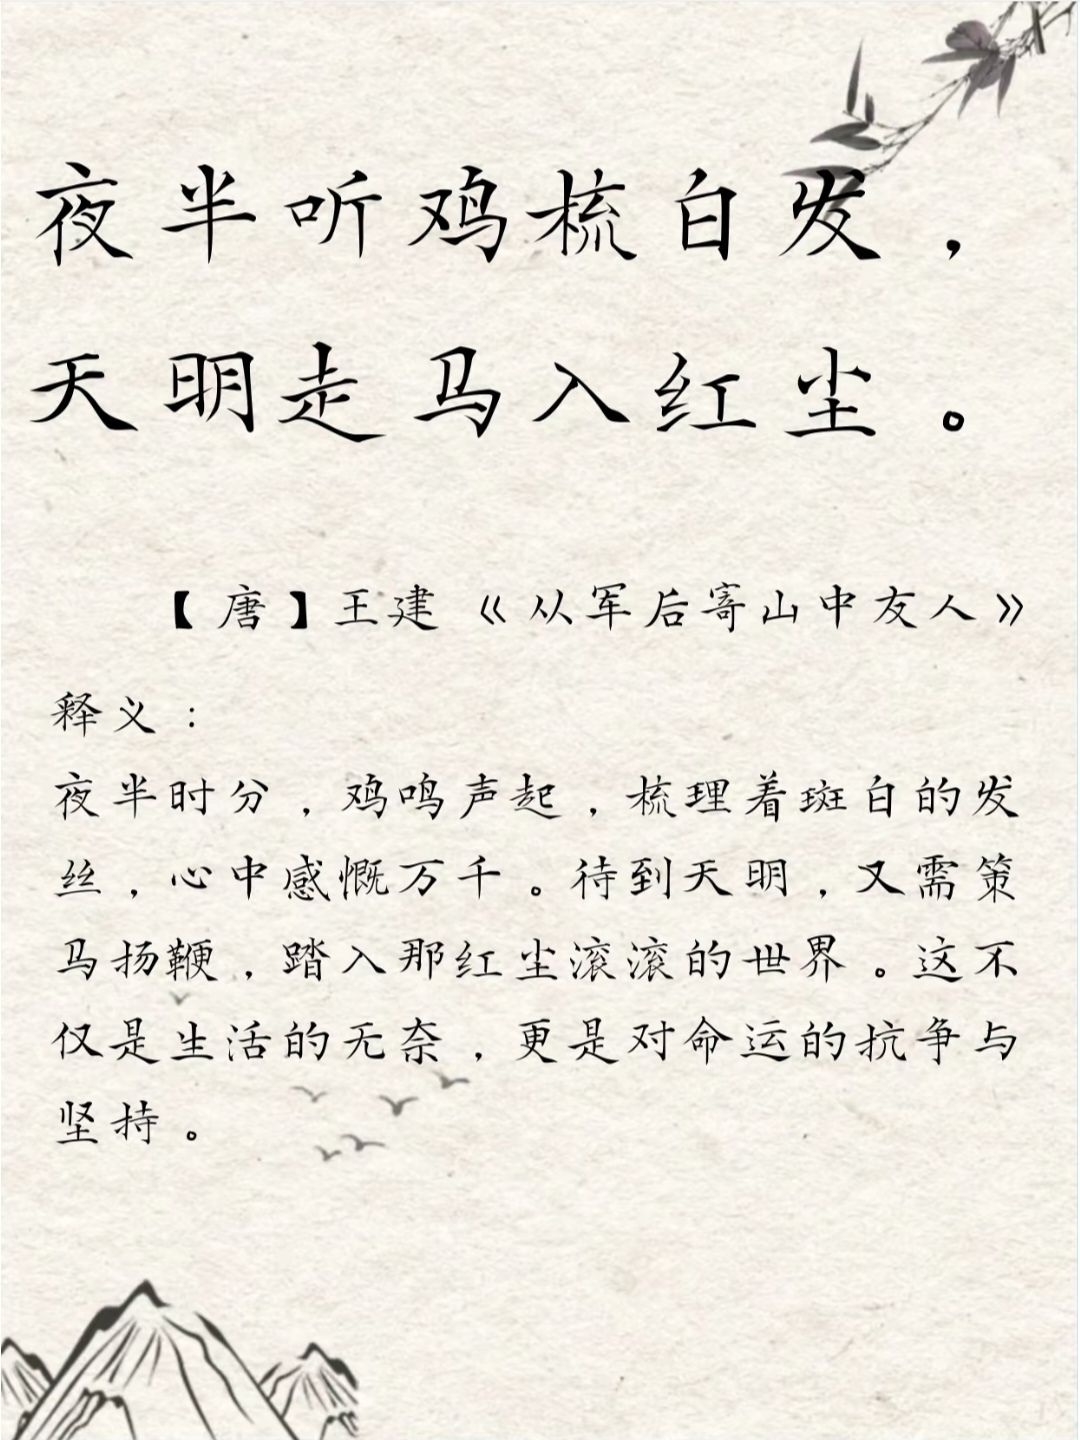 夜半听鸡梳白发，
天明走马入红尘。
【唐】王建《从军后寄山中友人》
释义：
夜半时分，鸡鸣声起，梳理着斑白的发
丝，心中感慨万千。待到天明，又需策
马扬鞭，踏入那红尘滚滚的世界。这不
仅是生活的无奈，更是对命运的抗争与
坚持。